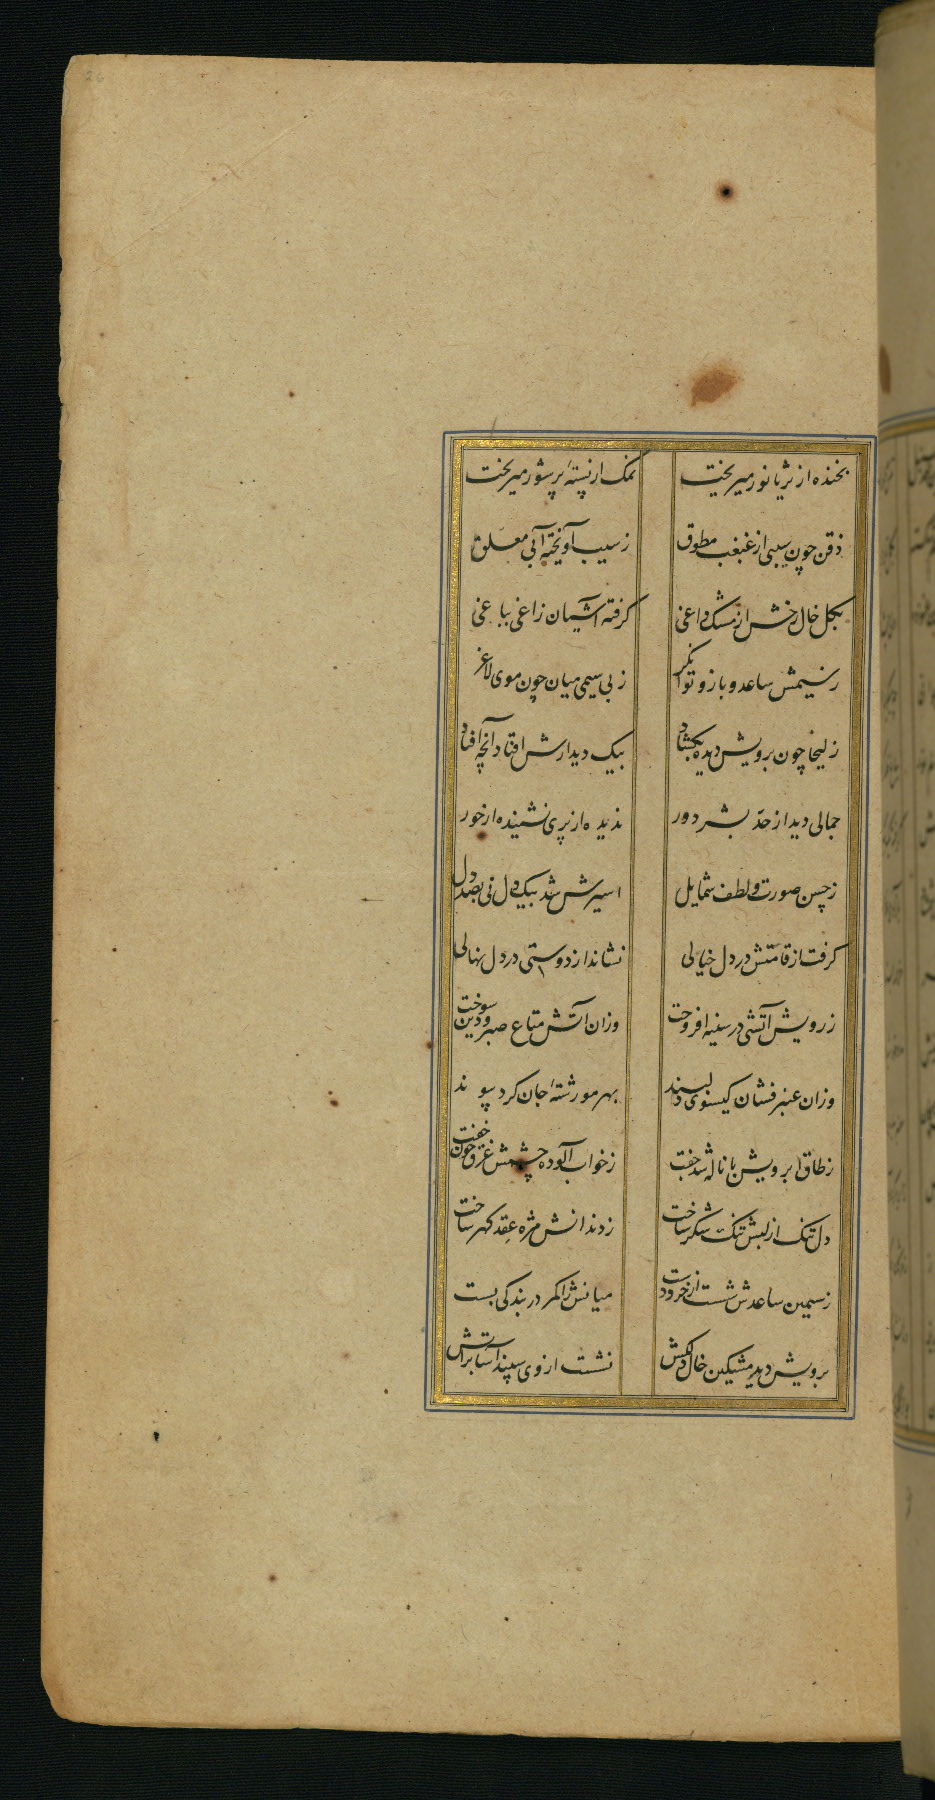 26
بخنده از ثریا نور میریخت نمک از پسته پر شور میریخت
ذقن چون سیبی از غبغب مطوق ز سیب آویخته آبی معلق
بگل خال رخش از مشک داغی گرفته آشیان زاغی بباغی
ز سیمش ساعد و بازو توانگر ز بی سیمی میان چون موی لاغر
زلیخا چون برویش دیده بگشاد بیک دیدارش افتاد آنچه افتاد
جمالی دید از حد بشر دور ندیده از پری نشنیده از حور
ز حسن صورت و لطف شمایل اسیرش شد بیک دل نی بصد دل
گرفت از قامتش در دل خیالی نشاند از دوستی در دل نهالی
ز رویش آتشی در سینه افروخت وزان آتش متاع صبر و دین سوخت
وزان عنبر فشان گیسوی دلبند بهر مو رشته جان کرد پیوند
ز طاق ابرویش با ناله شد جفت ز خواب آلوده چشمش غرق خون خفت
دل تنگ از لبش تنگ شکر ساخت ز دندانش مژه عقد گهر ساخت
ز سیمین ساعدش شست از خرد دست میانش را کمر در بندگی بست
برویش دید مشکین خال دلکش نشست از وی سپند آسا بر آتش